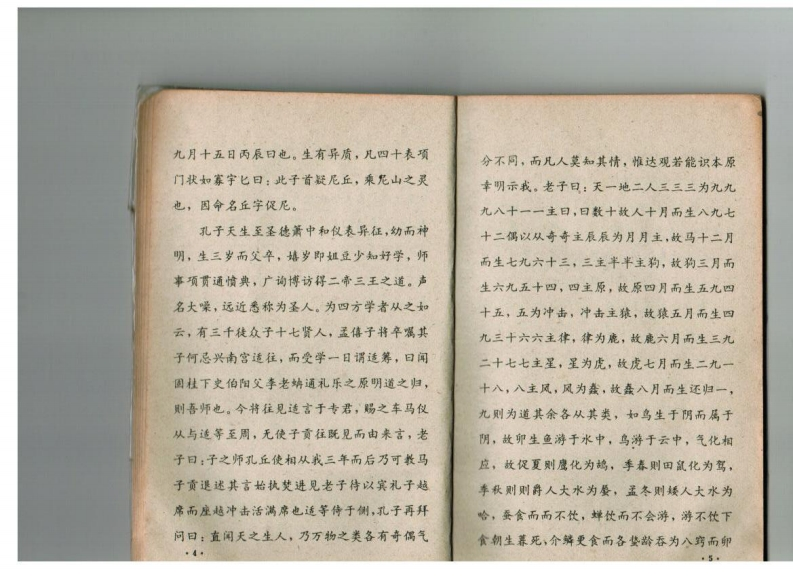 九月十五日丙辰日也。生有异质，凡四十表项
门状如寡字匕曰：此子首疑尼丘，乘尼山之灵
也，因命名丘字促尼。
孔子天生至圣德萧中和仪表异征，幼而神
明，生三岁而父卒，嬉岁即姐豆少知好学，师
事项贯通愤典，广询博访得二帝三王之道。声
名大噪，远近悉称为圣人。为四方学者从之如
云，有三千徒众子十七贤人，孟僖子将卒嘱其
子何忌兴南宫适往，而受学一日谓适筹，曰闻
固柱下史伯阳父李老蚋通礼乐之原明道之归，
则吾师也。今将往见适言于专君，赐之车马仪
从与适等至周，无使子贡往既见而由来言，老
子曰：子之师孔丘使相从我三年而后乃可教马
子贡退述其言始执埜进见老子待以宾礼子越
席而座越冲击活满席也适等侍于侧，孔子再拜
问曰：直闻天之生人，乃万物之类各有奇偶气
·4·
分不同，而凡人莫知其情，惟达观若能识本原
幸明示我。老子曰：天一地二人三三三为九九
九八十一一主曰，曰数十故人十月而生八九七
十二偶以从奇奇主辰辰为月月主，故马十二月
而生七九六十三，三主半半主狗，故狗三月而
生六九五十四，四主原，故原四月而生五九四
十五，五为冲击，冲击主猿，故猿五月而生四
九三十六六主律，律为鹿，故鹿六月而生三九
二十七七主星，星为虎，故虎七月而生二九一
十八，八主风，风为螽，故螽八月而生还归一，
九则为道其余各从其类，如鸟生于阴而属于
阴，故卵生鱼游于水中，鸟游于云中，气化相
应，故促夏则鹰化为鸠，季春则田鼠化为驾，
季秋则则爵人大水为蜃，孟冬则矮人大水为
哈，蚕食而而不饮，蝉饮而不会游，游不饮下
食朝生暮死，介鳞更食而各蛰龄吞为八窍而卵
·5·